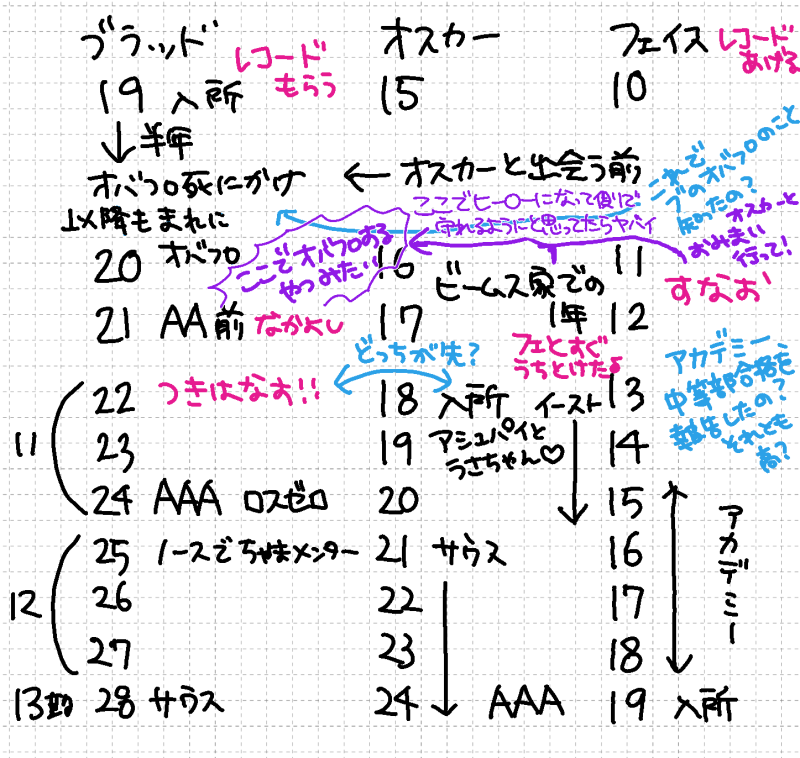 ブラッド オスカー フェイス
レコード
もらう
レコード
あげる
19 入所 15 10
半年
オバフロ死にがけ ← オスカーと出会う前
以降もまれに
オバフロ
これで
ブのオバフロのこと
知ったの?
ここでヒーローになって傍で
守れるようにと思ってたらヤバイ
ここでオバフロある
やつみたい
オスカーと
おみまい
行って!
20 16 11
ビームス家での
1年
すなお
21 AA前 なかよし 17 12
どっちが先?
フェとすぐ
うちとけたよ
アカデミー、
中等部合格を
報告したの?
それとも
高?
22 つきはなす!! 18 入所 イースト 13
11
23 19 アシュパイと
うさちゃん♡
14
24 AAA ロスゼロ 20 15
アカデミー
25 ノースでちゃまメンター 21 サウス 16
12
26 22 17
27 23 18
13期 28 サウス 24 AAA 19 入所